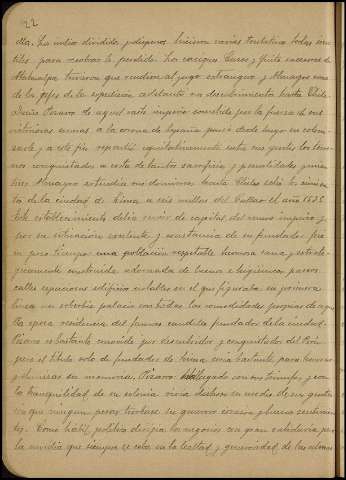 22
ella. Los indios divididos y dispersos hicieron varias tentativas todas inu-
tiles para recobrar lo perdido. Los caciques Cusco y Quito sucesores de
Atahualpa tuvieron que rendirse al yugo extrangero y Almagro uno
de los gefes de la expedicion adelantó su descubrimiento hasta Chile.
Dueño Pizarro de aquel vasto imperio sometido por la fuerza de sus
victoriosas armas a la corona de España pensó desde luego en coloni-
zarle y a este fin repartió equitativamente entre sus gentes los terre-
nos conquistados a costa de tantos sacrificios y penalidades
Almagro estendia sus dominios hasta Chile echó los cimien-
tos de la ciudad de Lima a seis millas del Callao el año 1535.
Este establecimiento debia servir de capital del nuevo imperio y
por su situacion excelente y constancia de su fundador fué
en poco tiempo una poblacion respetable hermosa sana y
construida adornada de buenos e higienicos paseos
calles espaciosas edificios notables en el que figuraba en primera
linea un soberbio palacio con todas las comodidades propias de aque-
lla epoca residencia del famoso caudillo fundador de la ciudad.
Pizarro es bastante conocido por descubridor y conquistador del Perú
pero el titulo solo de fundador de Lima seria bastante para honrar
y su memoria. Pizarro halagado con sus triunfos y con
la tranquilidad de su colonia vivia dichoso en medio de sus gentes
sin que ningun pesar turbase su guerrero corazon y buenos sentimien-
tos. Como habil politico dirigia los negocios con gran sabiduria pero
la envidia que siempre se ceba en la lealtad y generosidad de las almas